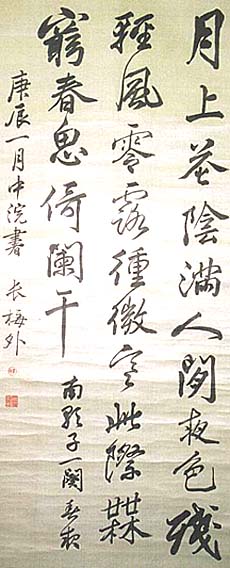 月上花陰滿人閒夜色殘
輕風零露微寒此際無
窮春思倚闌干 南歌子一闋春夜
庚辰一月中浣書 長梅外